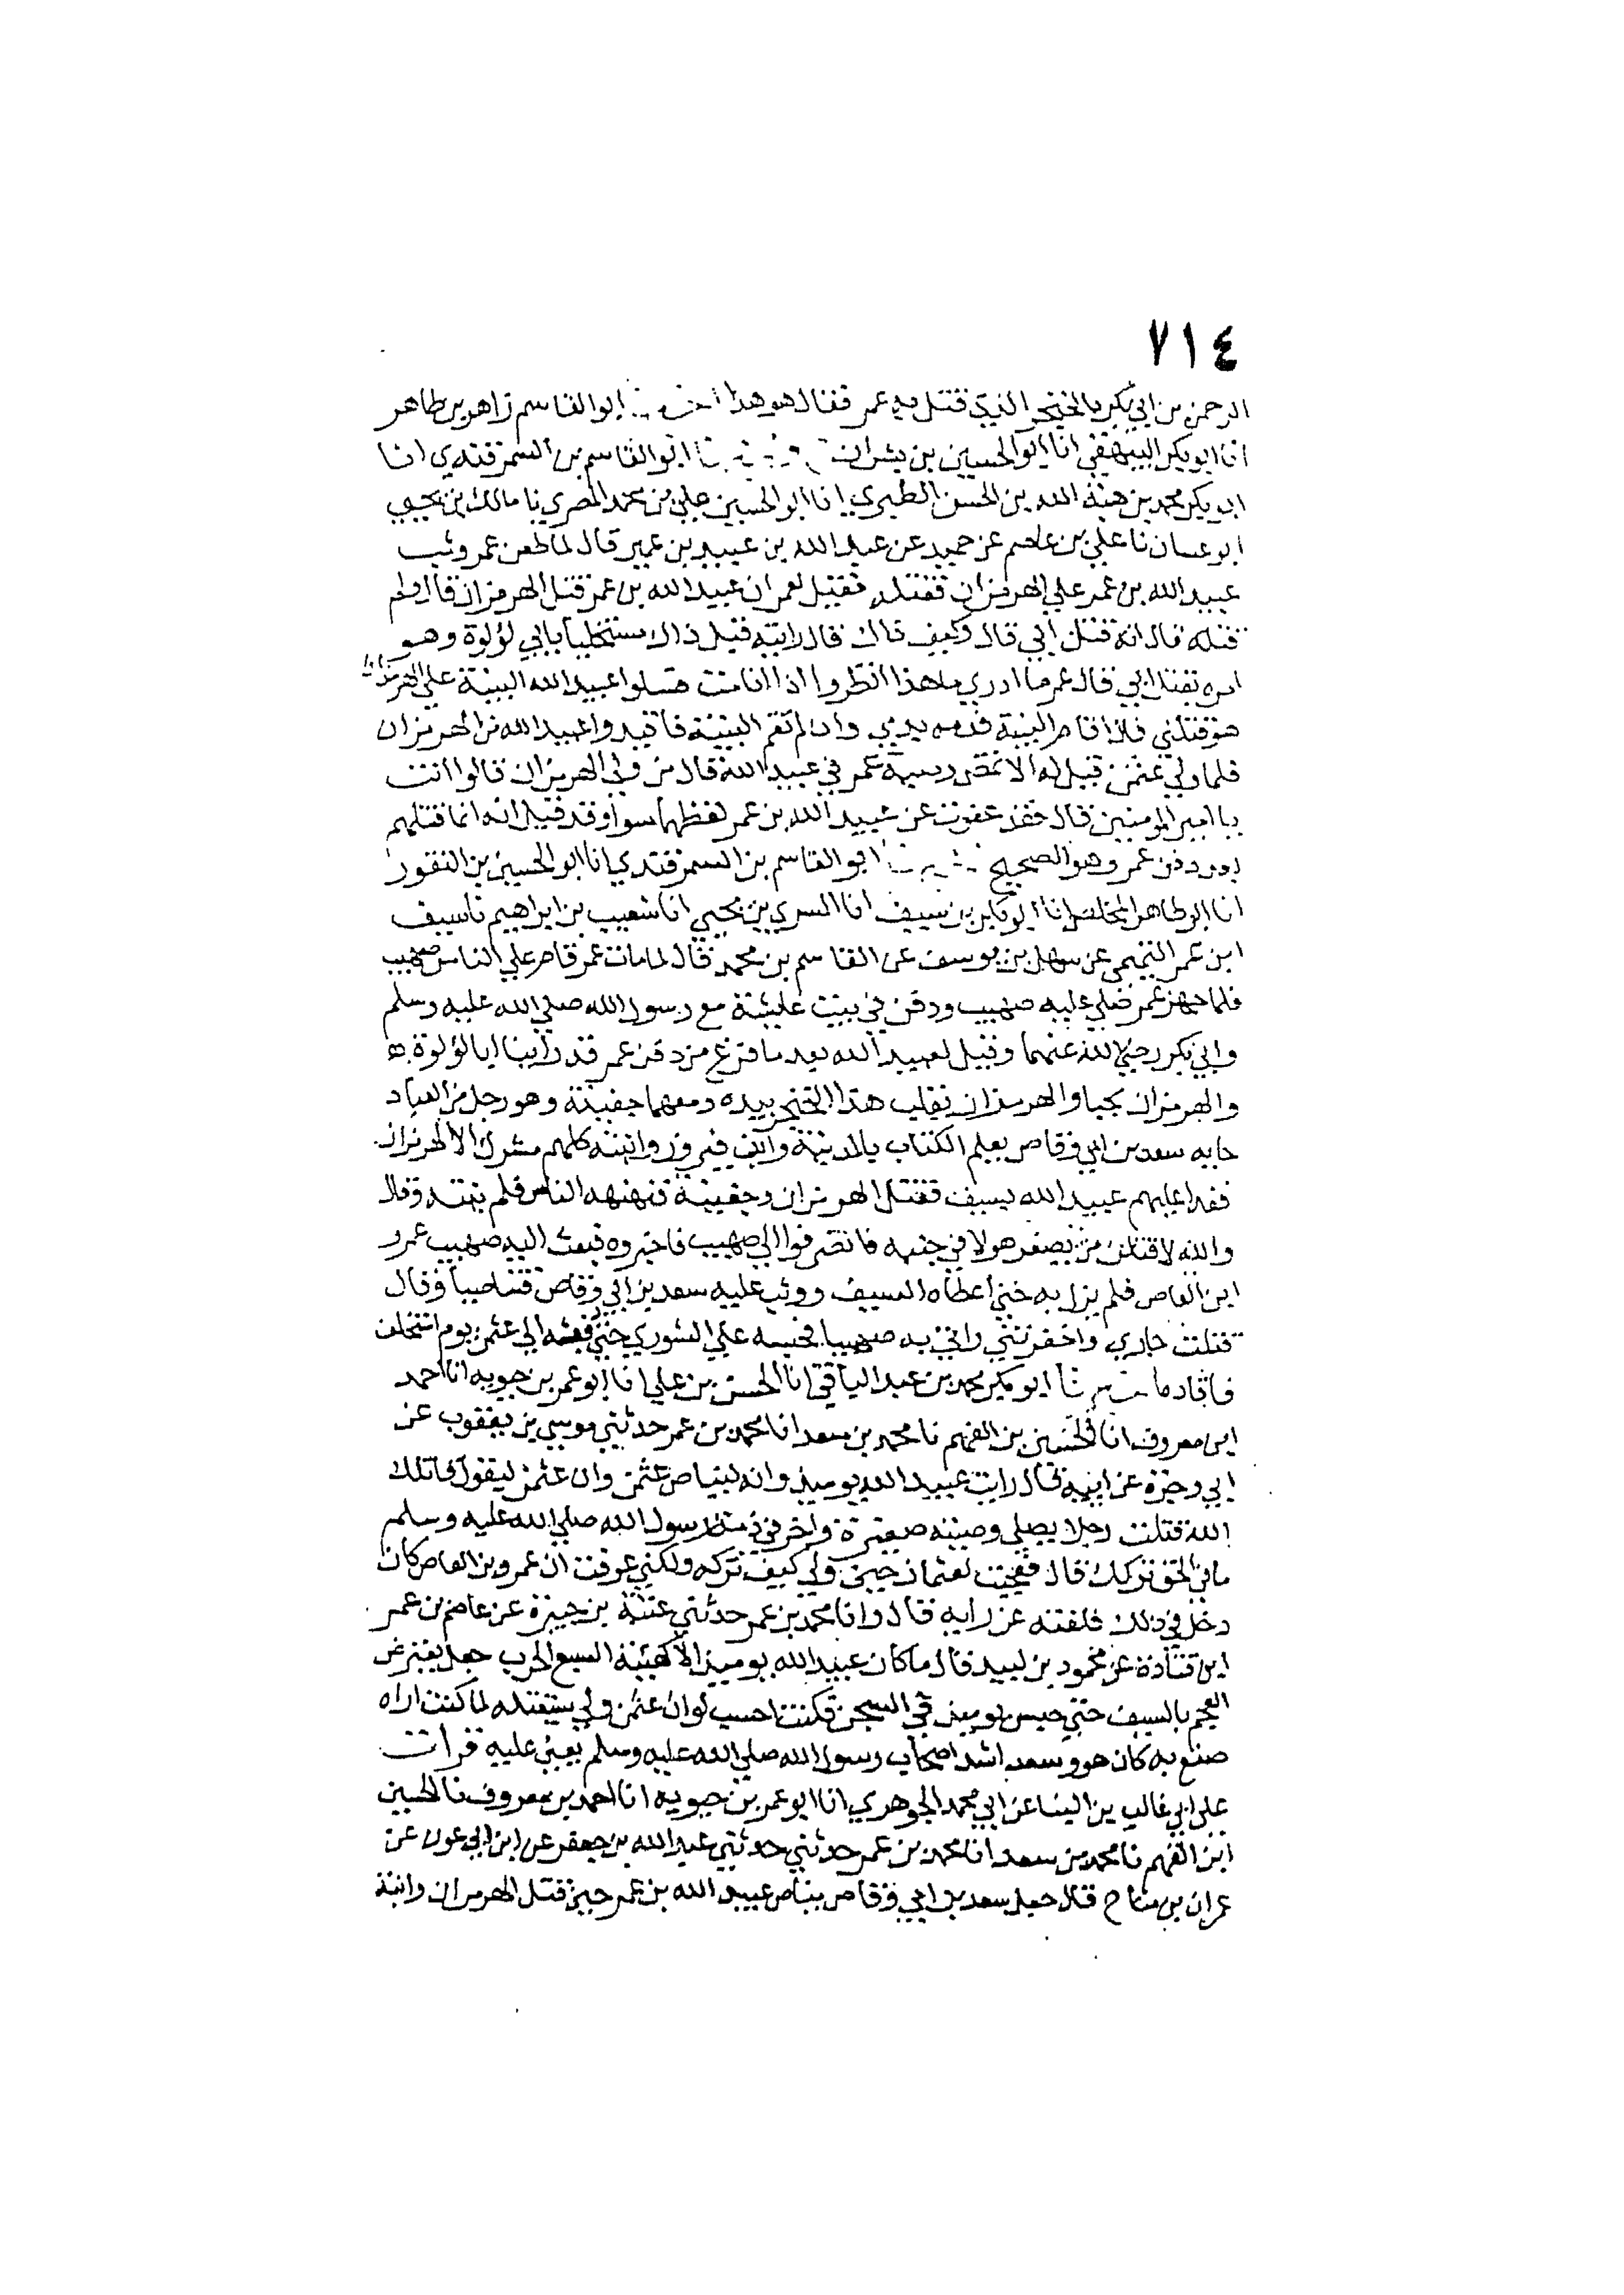 ٧١٤
الرحمن بن ابي بكر بالخنجر الذي قتل به عمر فقال هو هذا ابو القاسم زاهر بن طاهر
انا ابو بكر البيهقي انا ابو الحسين بن بشران ابو القاسم بن السمرقندي انا
ابو بكر محمد بن هبة الله بن الحسن الطبري انا ابو الحسين علي بن محمد المصري نا مالك بن يحيي
ابو غسان نا علي بن عاصم عن حميد عن عبد الله بن عبيد بن عمير قال لما طعن عمر وثب
عبيد الله بن عمر علي الهرمزان فقتله فقيل لعمر ان عبيد الله بن عمر قتل الهرمزان قال ولم
قتله قال انه قتل ابي قال وكيف ذاك قال رايته قبل ذاك مستخليا بابي لؤلوة وهو
امره بقتل ابي قال عمر ما ادري ما هذا انظروا اذا انا مت فسلوا عبيد الله البينة علي الهرمزان
هو قتلني فاذا اقام البينة فدمه بدمي وان لم تقم البينة فاقيدوا عبيد الله من الهرمزان
فلما ولي عثمن قيل له الا تمضي وصية عمر في عبيد الله قال من ولي الهرمزان قالوا انت
يا امير المومنين قال فقد عفوت عن عبيد الله بن عمر لفظهما سوا وقد قيل انه انما قتلهم
بعد دفن عمر وهو الصحيح ابو القاسم بن السمرقندي انا ابو الحسين بن النقور
انا ابو طاهر المخلص انا ابو بكر بن سيف انا السري بن يحيي انا شعيب بن ابراهيم نا سيف
ابن عمر التميمي عن سهل بن يوسف عن القاسم بن محمد قال لما مات عمر قام علي الناس صهيب
فلما جهز عمر صلي عليه صهيب ودفن في بيت عايشة مع رسول الله صلي الله عليه وسلم
وابي بكر رضي الله عنهما وقيل لعبيد الله بعد ما فرغ من دفن عمر قد راينا ابا لؤلوة
والهرمزان نجيا والهرمزان يقلب هذا الخنجر بيده ومعهما جفينة وهو رجل من العباد
جا به سعد بن ابي وقاص يعلم الكتاب بالمدينة وابن فيروز وابنته كلهم مشرك الا الهرمزان
فغدا عليهم عبيد الله بسيف فقتل الهرمزان وجفينة فنهنهه الناس فلم ينته وقال
والله لاقتلن من يصغر هولا في جنبه فانصرفوا الي صهيب فاخبروه فبعث اليه صهيب عمرو
ابن العاص فلم يزل به حتي اعطاه السيف ووثب عليه سعد بن ابي وقاص فتناصيا وقال
قتلت جاري واخفرتني واتي به صهيبا فحبسه علي الشوري حتي دفعه الي عثمن يوم استخلف
فاقاده ابو بكر محمد بن عبد الباقي انا الحسن بن علي انا ابو عمر بن حيويه انا احمد
ابن معروف انا الحسين بن الفهم نا محمد بن سعد انا محمد بن عمر حدثني موسي بن يعقوب عن
ابي وجزة عن ابيه قال رايت عبيد الله يوميذ وانه ليناصي عثمن وان عثمن ليقول قاتلك
الله قتلت رجلا يصلي وصبية صغيرة واخر في ذمة رسول الله صلي الله عليه وسلم
ما في الحق تركك قال فعجبت لعثمان حين ولي كيف تركه ولكني عرفت ان عمرو بن العاص كان
دخل في ذلك فلفته عن رايه قال وانا محمد بن عمر حدثني عتبة بن جبيرة عن عاصم بن عمر
ابن قتادة عن محمود بن لبيد قال ما كان عبيد الله يوميذ الا كهيئة السبع الحرب جعل يعترض
العجم بالسيف حتي حبس يوميذ في السجن فكنت احسب لو ان عثمن ولي سيقتله لما كنت اراه
صنع به كان هو وسعد اشد اصحاب رسول الله صلي الله عليه وسلم يعني عليه قرات
علي ابي غالب بن البنا عن ابي محمد الجوهري انا ابو عمر بن حيويه انا احمد بن معروف نا الحسين
ابن الفهم نا محمد بن سعد انا محمد بن عمر حدثني حدثني عبد الله بن جعفر عن ابن ابي عون عن
عمران بن مناح قال جعل سعد بن ابي وقاص يناصي عبيد الله بن عمر حين قتل الهرمزان وابنة